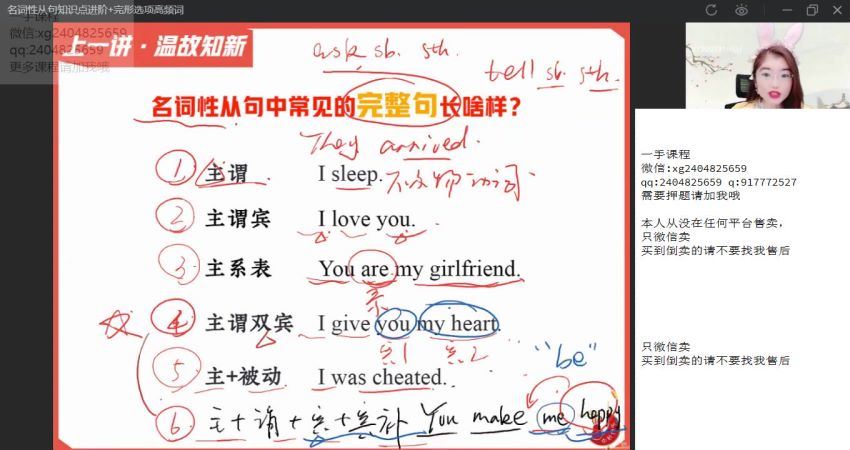 名词性从句知识点进阶+完形选项高频词
一手课程
微信:xg2404825659
qq:2404825659
更多课程请加我哦
上一讲·温故知新
ask sb. sth.
tell sb. sth.
名词性从句中常见的完整句长啥样？
They arrived.
① 主谓 I sleep. 不及物动词
② 主谓宾 I love you.
③ 主系表 You are my girlfriend.
系
④ 主谓双宾 I give you my heart.
宾1 宾2
"be"
⑤ 主+被动 I was cheated.
⑥ 主+谓+宾+宾补 You make me happy
一手课程
微信:xg2404825659
qq:2404825659 q:917772527
需要押题请加我哦
本人从没在任何平台售卖，
只微信卖
买到倒卖的请不要找我售后
只微信卖
买到倒卖的请不要找我售后